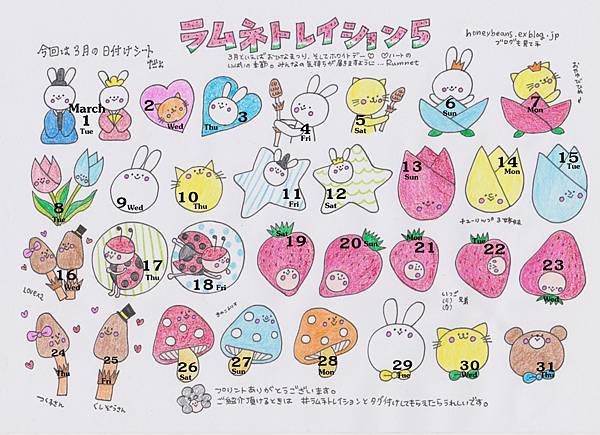 ラムネトレイション5
honeybeans.exblog.jp
ブログも見て来
今回は3月の日付けシート
だよ
3月といえばおひなまつり、そしてホワイトデー♡ ♡ハートの
いっぱいの季節。みんなの気持ちが届きますように… Rumnet
おやゆびひめ
March
1
Tue
2
Wed
3
Thu
4
Fri
5
Sat
6
Sun
7
Mon
8
Tue
9
Wed
10
Thu
11
Fri
12
Sat
13
Sun
14
Mon
15
Tue
チューリップ3姉妹
16
Wed
17
Thu
18
Fri
19
Sat
20
Sun
21
Mon
22
Tue
23
Wed
LOVE×2
いちご
兄弟
24
Thu
25
Fri
26
Sat
27
Sun
28
Mon
29
Tue
30
Wed
31
Thu
つくしさん
プリントありがとうございます。
ご紹介頂けるときは #ラムネトレイションとタグ付けしてもらえたらうれしいです。